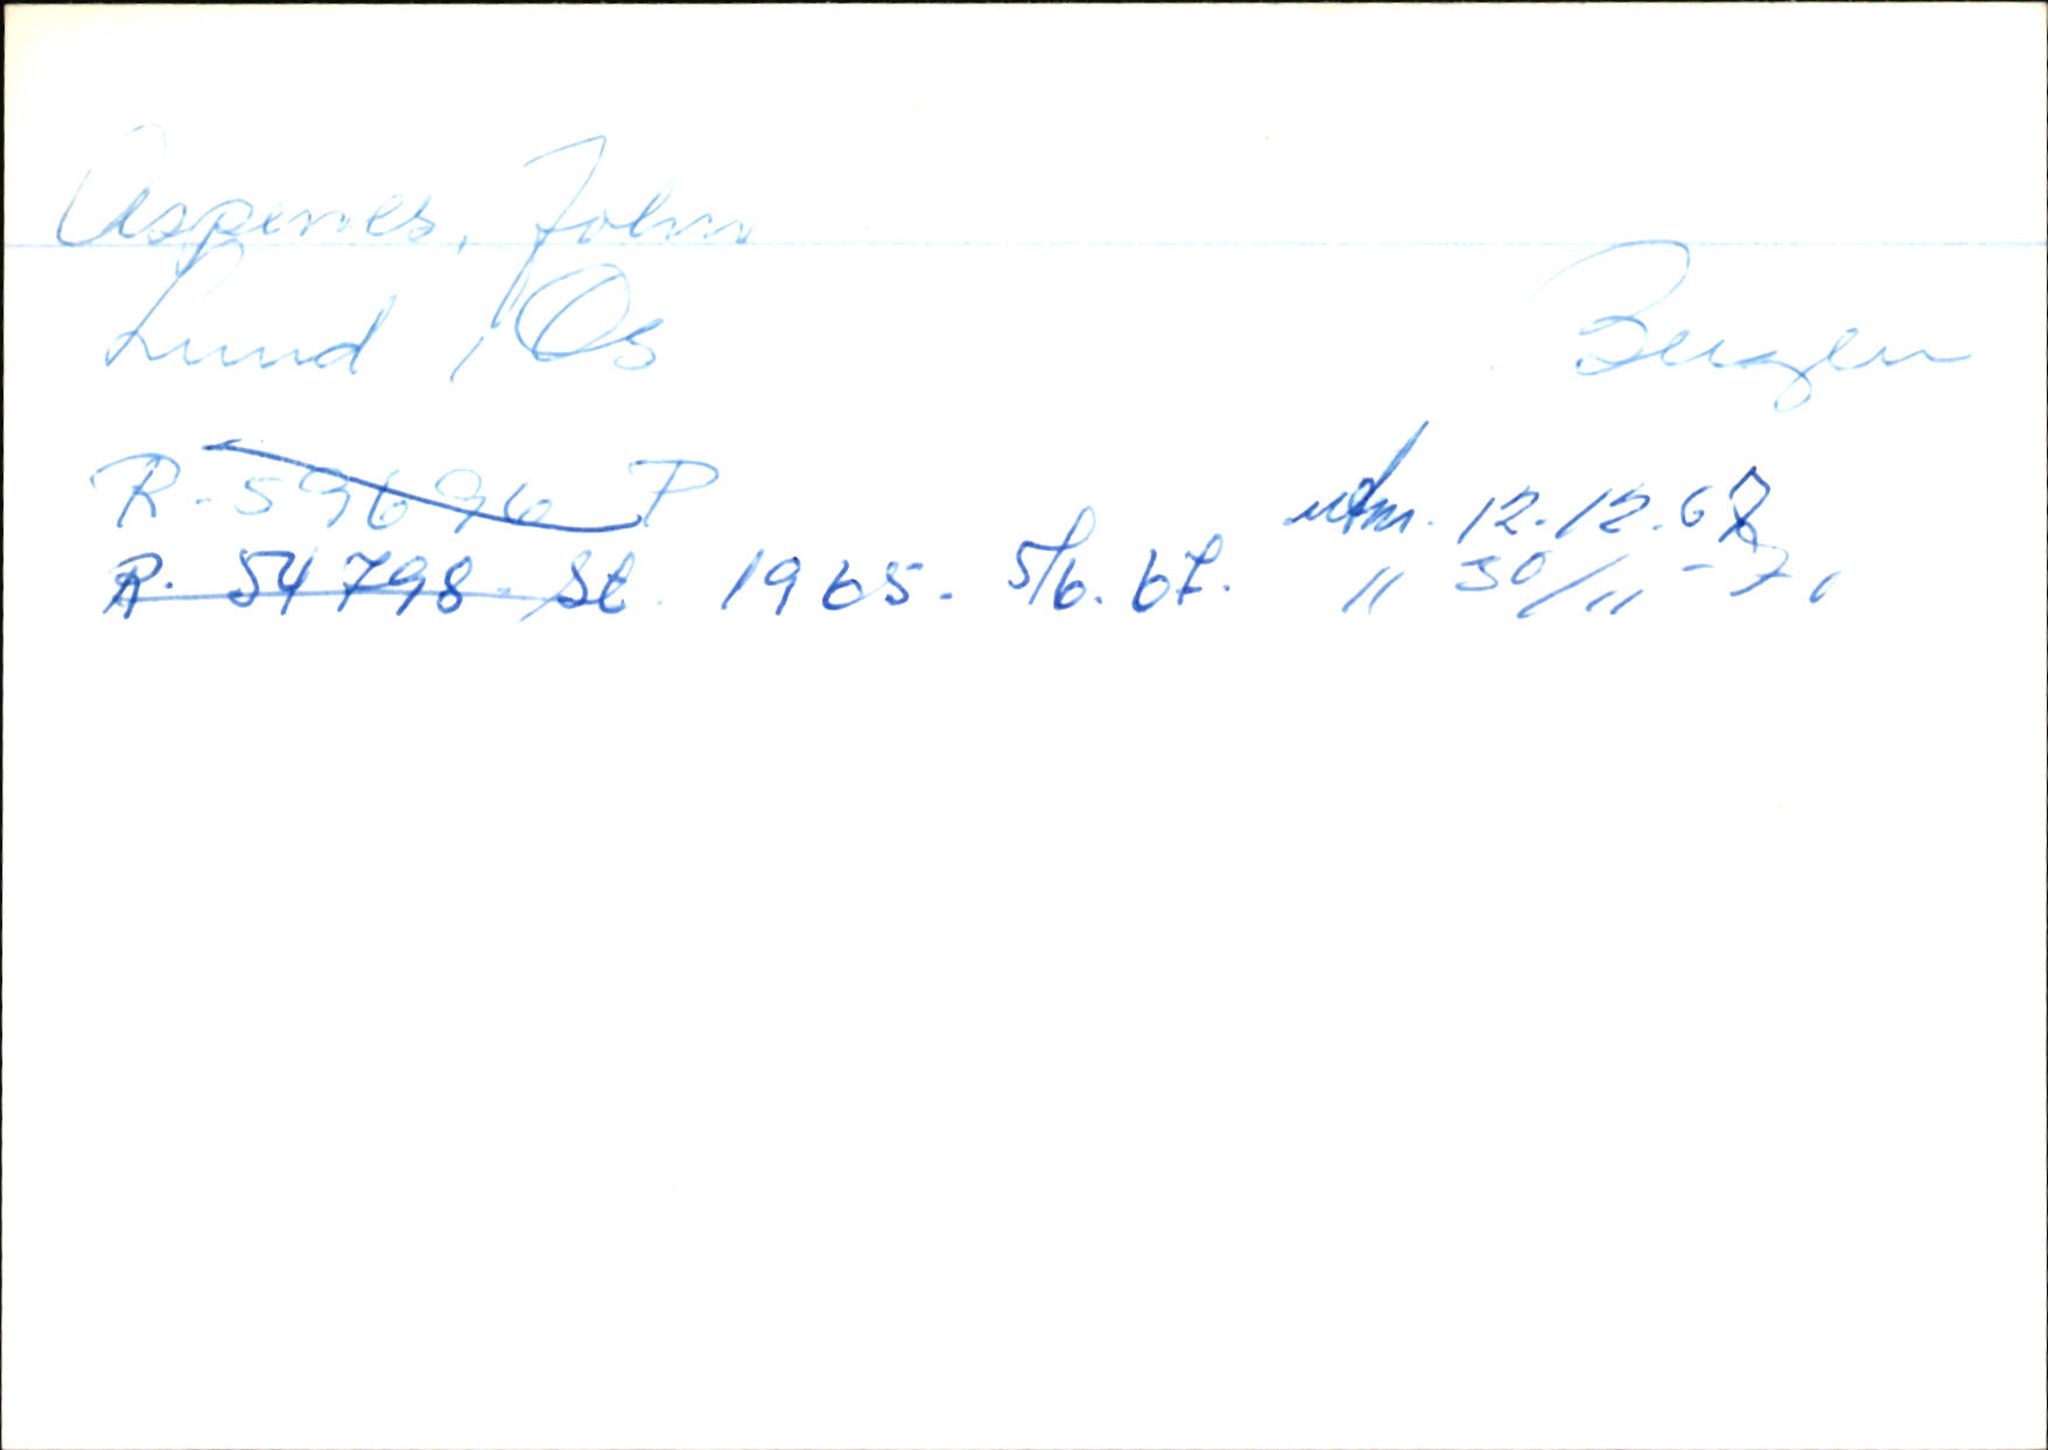 Aspenes, John
Lund, Os Bergen
R-59696 P utm. 12.12.67
R. 54798 St. 1965. 5/6.67. " 30/11-71